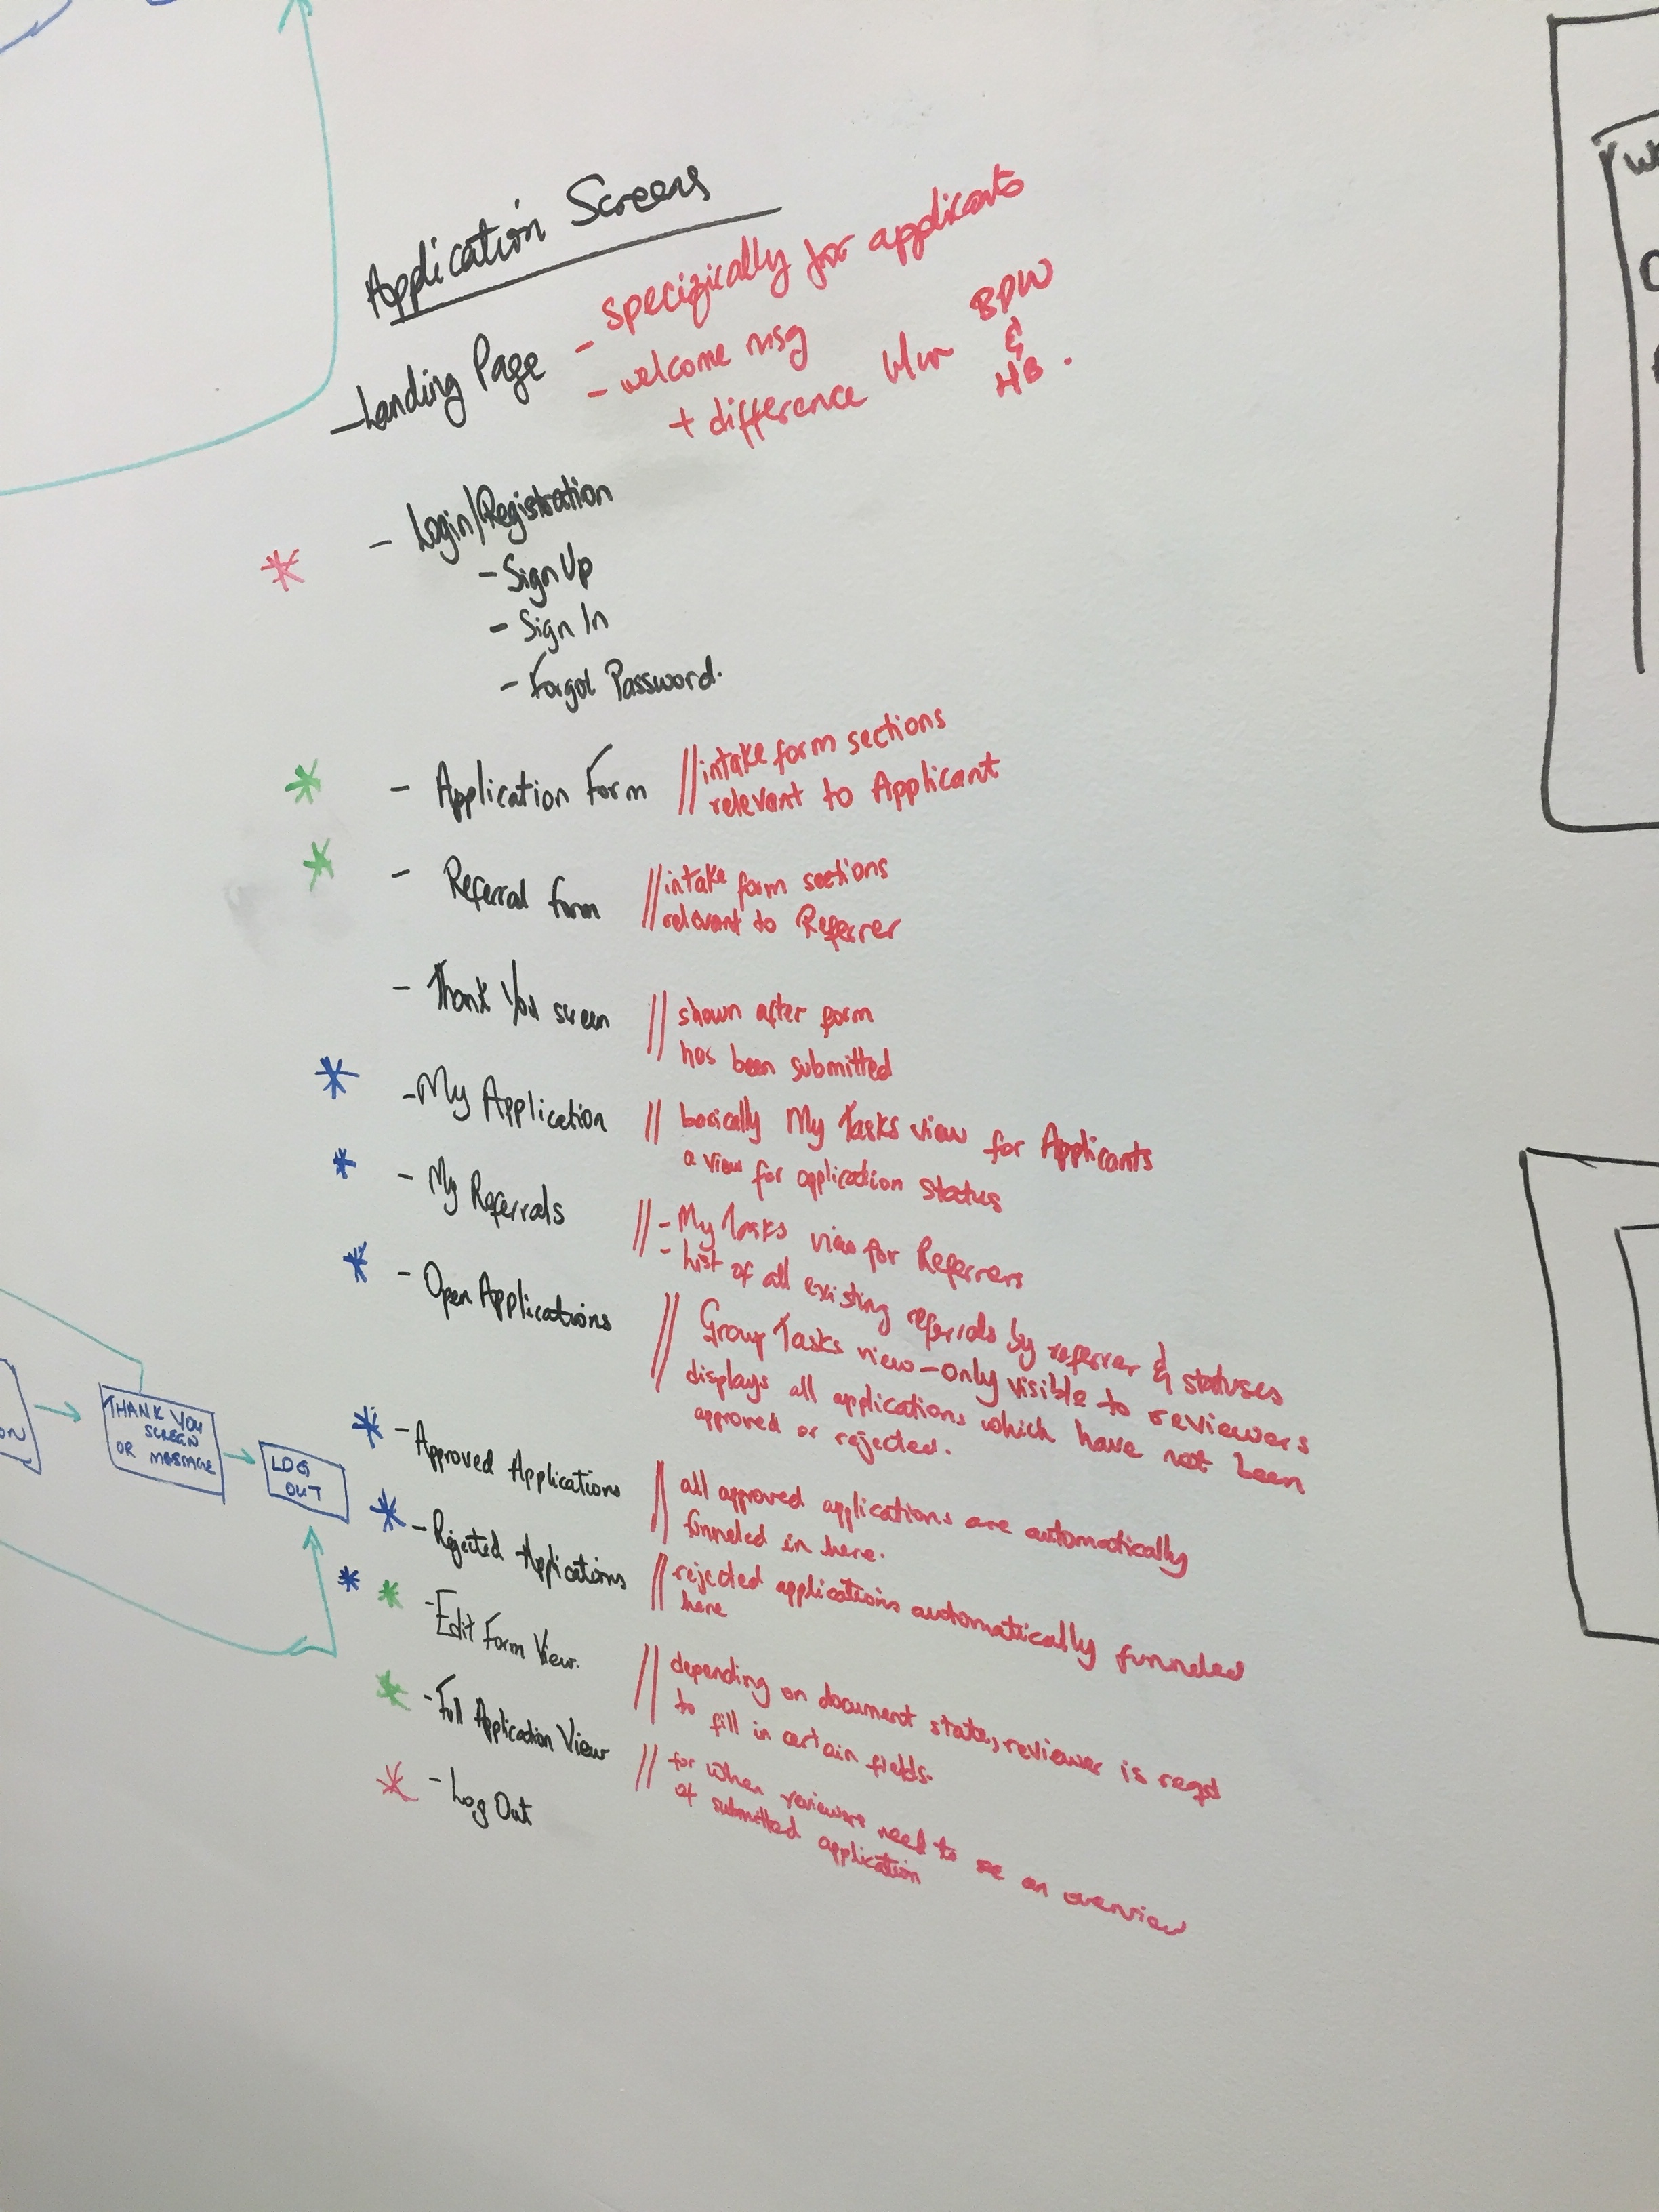 Application Screens
- Landing Page
- specifically for applicants
- welcome msg
+ difference b/w BPW
&
HB.
- Login/Registration
- Sign Up
- Sign In
- Forgot Password.
- Application Form // intake form sections
relevant to Applicant
- Referral Form // intake form sections
relevant to Referrer
- Thank You screen // shown after form
has been submitted
- My Application // basically My Tasks view for Applicants
a view for application status
- My Referrals // - My Tasks view for Referrers
- List of all existing referrals by referrer & statuses
- Open Applications // Group Tasks view - only visible to reviewers
displays all applications which have not been
approved or rejected.
- Approved Applications // all approved applications are automatically
funneled in here.
- Rejected Applications // rejected applications automatically funneled
here
- Edit Form View. // depending on document state, reviewer is reqd
to fill in certain fields.
- Full Application View // for when reviewers need to see an overview
of submitted application
- Log Out
ON
THANK YOU
SCREEN
OR MESSAGE
LOG
OUT